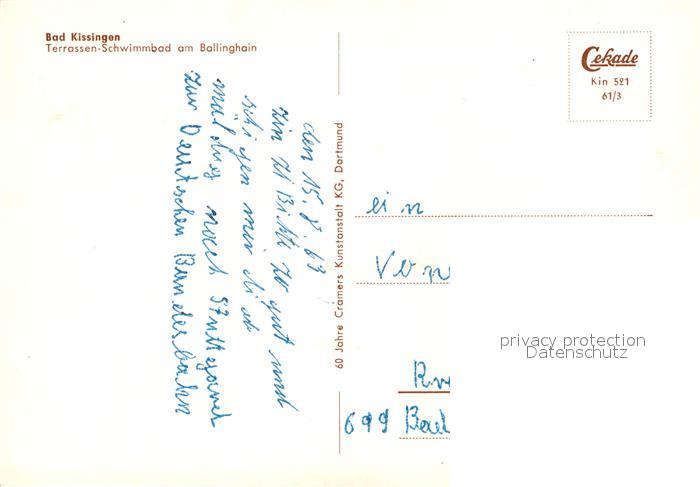 Bad Kissingen
Terrassen-Schwimmbad am Ballinghain
Cekade
Kin 521
61/3
60 Jahre Cramers Kunstanstalt KG, Dortmund
den 15. 8. 63
Bitte zo gut und
mir
noch Stuttgart
zur Deutschen Bundesbahn
ein
Von
699 Bad
privacy protection
Datenschutz